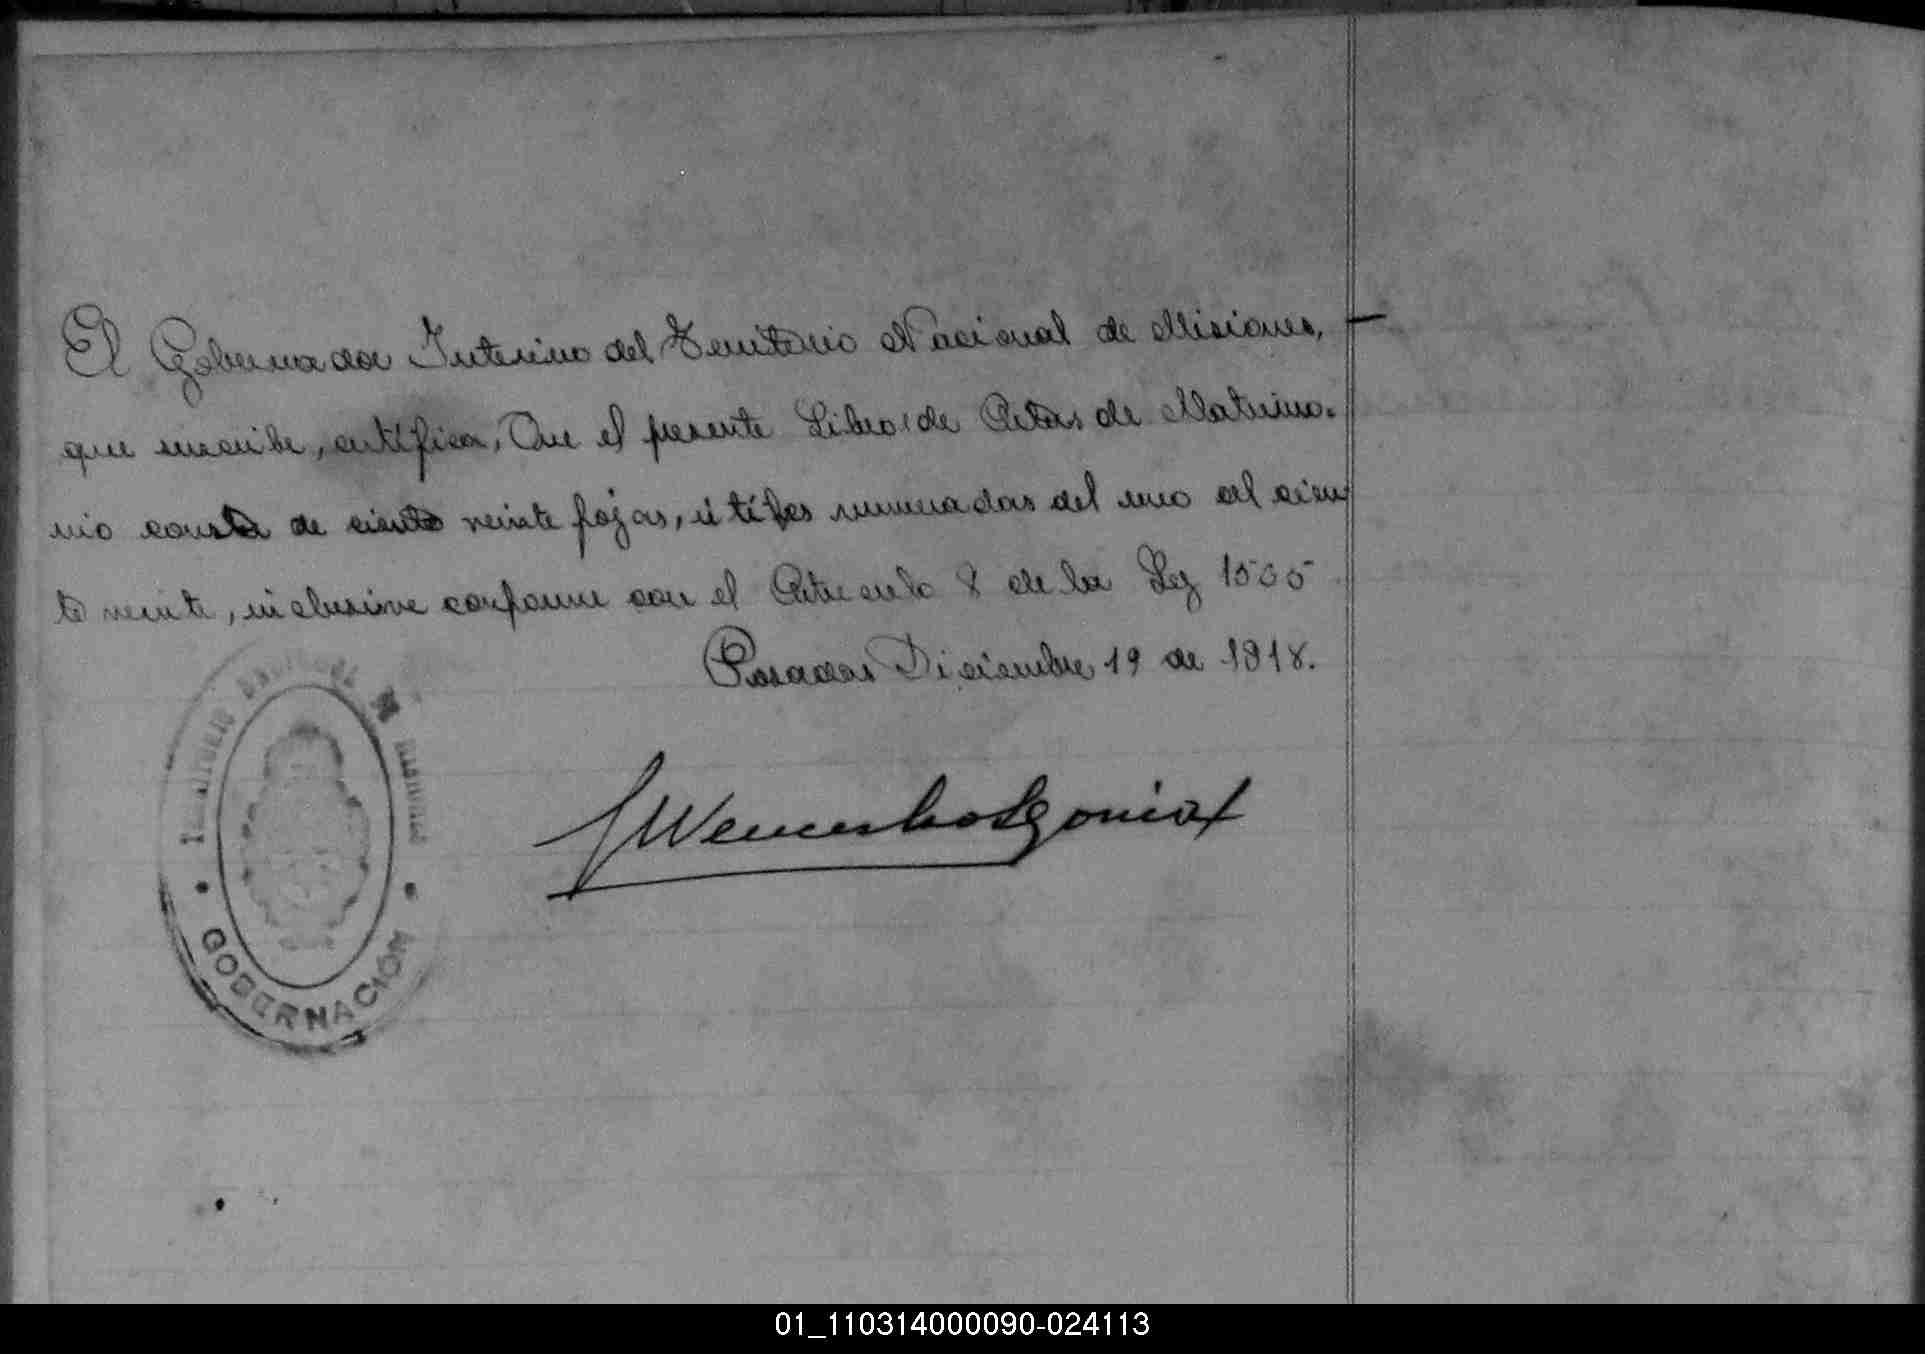 El Gobernador Interino del Territorio Nacional de Misiones, —
que suscribe, certifica, Que el presente Libro de Actas de Matrimo-
nio consta de ciento veinte fojas, útiles numeradas del uno al cien
to veinte, inclusive conforme con el Articulo 8 de la Ley 1565
Posadas Diciembre 19 de 1918.
TERRITORIO NACIONAL DE MISIONES
GOBERNACIÓN
01_110314000090-024113